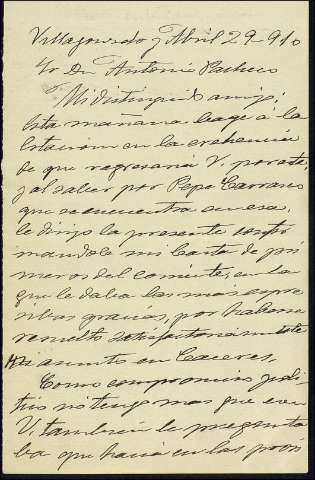 Villagonzalo y Abril 29-910
Sr Dn Antonio Pacheco
Mi distinguido amigo:
Esta mañana bagé á la
Estacion en la crehencia
de que regresaria V. por esta,
y al saber por Pepe Carrasco
que se encuentra en esa,
le dirijo la presente confir
mandole mi carta de pri
meros del corriente, en la
que le daba las mas expre
sibas gracias, por haberme
resuelto satisfactoriamente
mi asunto en Caceres,
Como compromiso poli
tico no tengo mas que con
V. tambien le pregunta
ba que hacia en las procsi